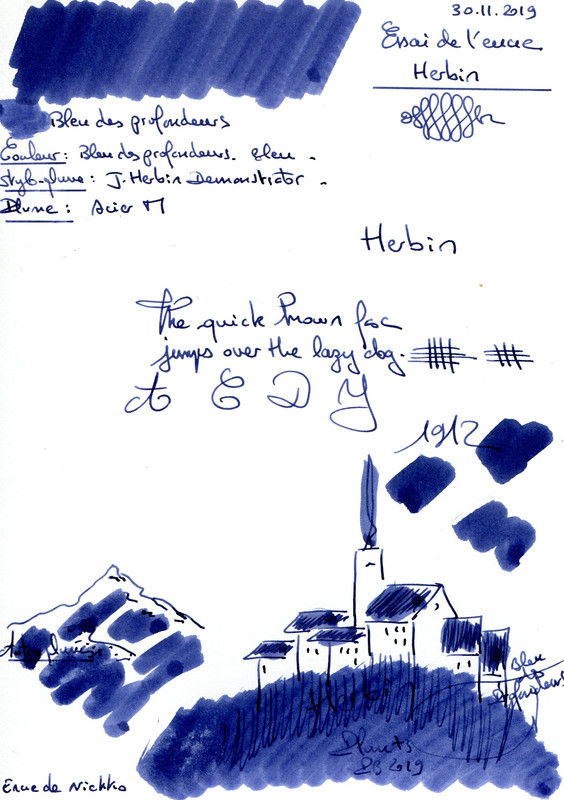 30.11.2019
Essai de l'encre
Herbin
Bleu des profondeurs
Couleur: Bleu des profondeurs. Bleu.
Stylo-plume: J. Herbin Demonstrator.
Plume: Acier M
Herbin
The quick brown fox
jumps over the lazy dog.
A E D Y
1912
Bleu
des
Profondeurs
Herbin
2019
Encre de Nickko